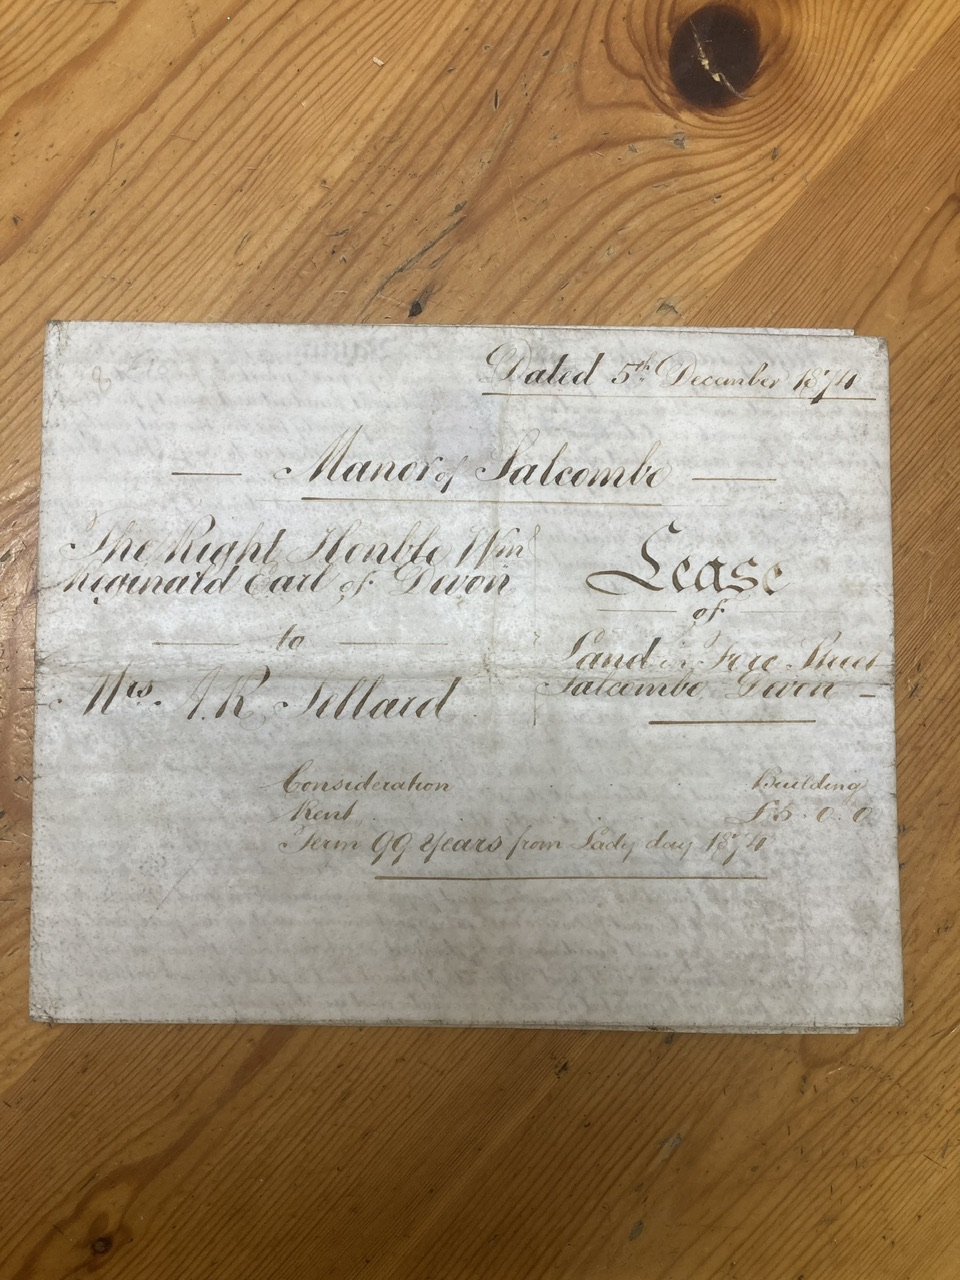 8
Dated 5th December 1874
Manor of Salcombe
The Right Honble Wm
Reginald Earl of Devon
to
Mrs. J. R. Sellard
Lease
of
Land in Fore Street
Salcombe Devon
Consideration Building
Rent £5.0.0
Term 99 Years from Lady day 1874